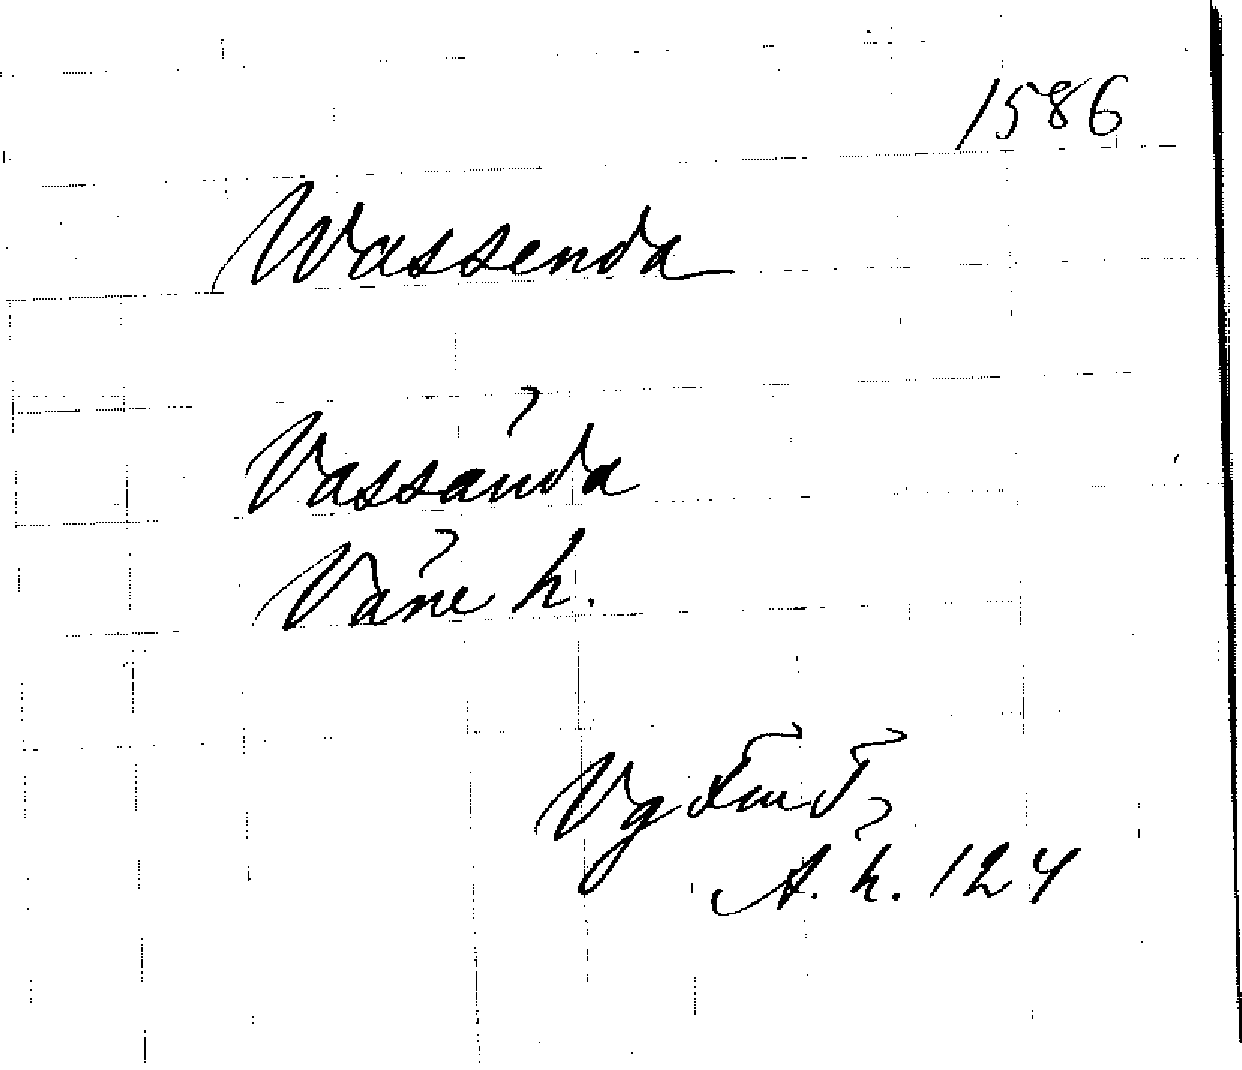 1586
Wassenda
Vassända
Väne h.
Vg
Ä. h. 124